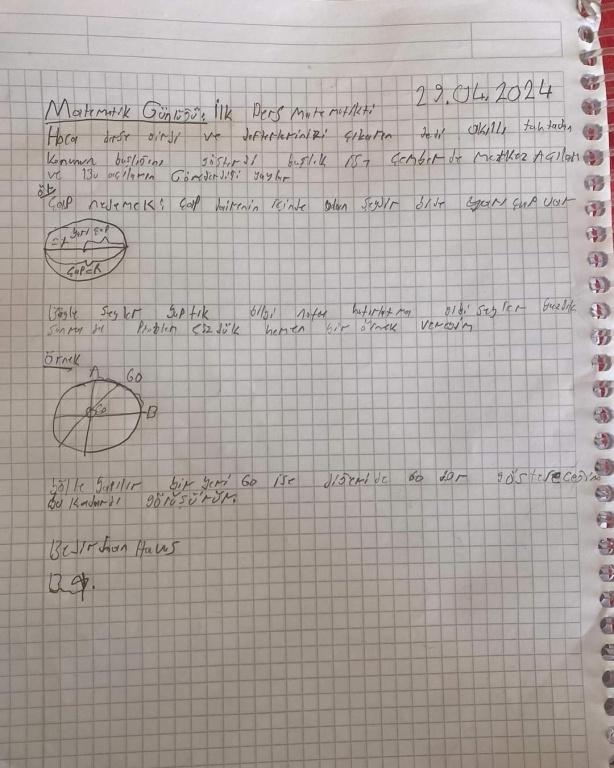 29.04.2024
Matematik Günlüğü: İlk Ders matematikti
Hoca derse girdi ve defterlerinizi çıkarın dedi akıllı tahtadan
Konunun başlığını gösterdi başlık ise Çemberde Merkez Açılar
ve Bu açıların Gördüğü yaylar
Çap nedemek: Çap dairenin içinde olan şeydir birde yarı çap var
=r yarı çap
Çap=R
Böyle şeyler yaptık bilgi notu hatırlatma gibi şeyler yazdık
Sonra da Problem çözdük hemen bir örnek vereyim
örnek
A 60
60 B
Böyle yapılır bir yeri 60 ise diğeride 60 dır göstereceğim
Bu kadardı görüşürüz.
Bedirhan